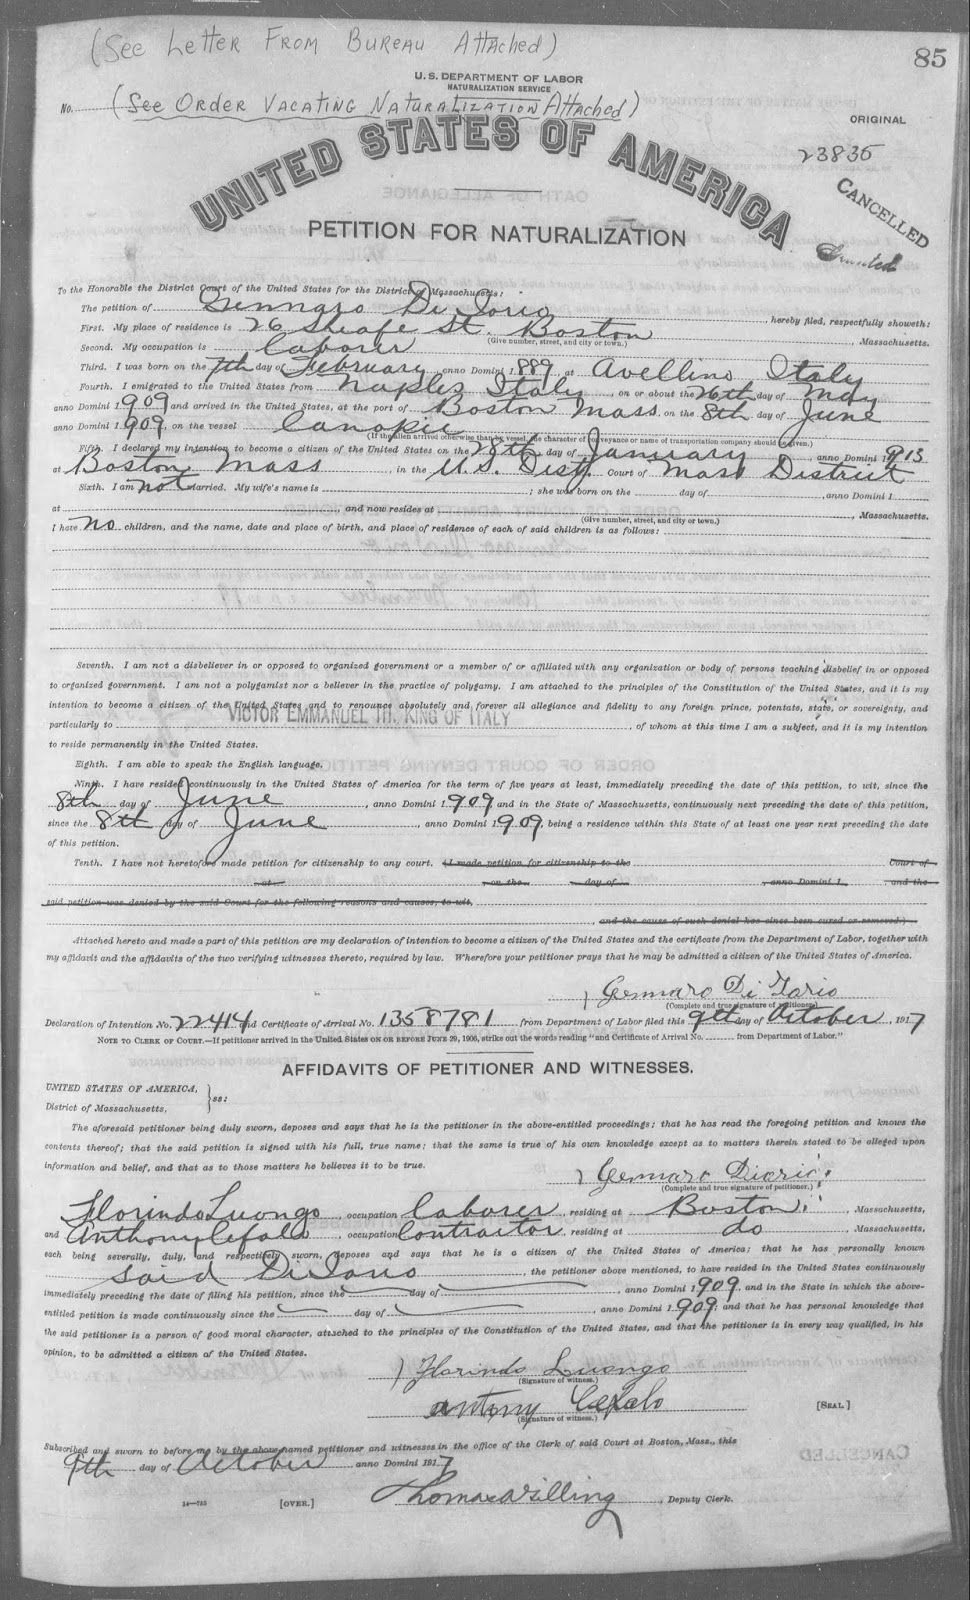 (See Letter From Bureau Attached)
85
U.S. DEPARTMENT OF LABOR
NATURALIZATION SERVICE
No. (See Order Vacating Naturalization Attached)
ORIGINAL
UNITED STATES OF AMERICA
23835
CANCELLED
PETITION FOR NATURALIZATION
Granted
To the Honorable the District Court of the United States for the District of Massachusetts:
The petition of Gennaro Di Iorio, hereby filed, respectfully showeth:
First. My place of residence is 26 Sheafe St. Boston, Massachusetts.
(Give number, street, and city or town.)
Second. My occupation is Laborer
Third. I was born on the 7th day of February, anno Domini 1889, at Avellino Italy
Fourth. I emigrated to the United States from Naples Italy, on or about the 26th day of May
anno Domini 1909 and arrived in the United States, at the port of Boston Mass. on the 8th day of June
anno Domini 1909, on the vessel Canopic
(If the alien arrived otherwise than by vessel, the character of conveyance or name of transportation company should be given.)
Fifth. I declared my intention to become a citizen of the United States on the 28th day of January, anno Domini 1913
at Boston Mass, in the U.S. Dist. Court of Mass District
Sixth. I am not married. My wife's name is ; she was born on the day of , anno Domini 1
at , and now resides at , Massachusetts.
(Give number, street, and city or town.)
I have no children, and the name, date and place of birth, and place of residence of each of said children is as follows:
Seventh. I am not a disbeliever in or opposed to organized government or a member of or affiliated with any organization or body of persons teaching disbelief in or opposed
to organized government. I am not a polygamist nor a believer in the practice of polygamy. I am attached to the principles of the Constitution of the United States, and it is my
intention to become a citizen of the United States and to renounce absolutely and forever all allegiance and fidelity to any foreign prince, potentate, state, or sovereignty, and
particularly to VICTOR EMMANUEL III, KING OF ITALY, of whom at this time I am a subject, and it is my intention
to reside permanently in the United States.
Eighth. I am able to speak the English language.
Ninth. I have resided continuously in the United States of America for the term of five years at least, immediately preceding the date of this petition, to wit, since the
8th day of June, anno Domini 1909 and in the State of Massachusetts, continuously next preceding the date of this petition,
since the 8th day of June, anno Domini 1909, being a residence within this State of at least one year next preceding the date
of this petition.
Tenth. I have not heretofore made petition for citizenship to any court. (I made petition for citizenship to the Court of
at on the day of anno Domini 1 and the
said petition was denied by the said Court for the following reasons and causes, to wit,
and the cause of such denial has since been cured or removed.)
Attached hereto and made a part of this petition are my declaration of intention to become a citizen of the United States and the certificate from the Department of Labor, together with
my affidavit and the affidavits of the two verifying witnesses thereto, required by law. Wherefore your petitioner prays that he may be admitted a citizen of the United States of America.
Gennaro Di Iorio
(Complete and true signature of petitioner.)
Declaration of Intention No. 22414 and Certificate of Arrival No. 1358781 from Department of Labor filed this 9th day of October, 1917
NOTE TO CLERK OF COURT.—If petitioner arrived in the United States ON OR BEFORE JUNE 29, 1906, strike out the words reading "and Certificate of Arrival No. from Department of Labor."
AFFIDAVITS OF PETITIONER AND WITNESSES.
UNITED STATES OF AMERICA,
District of Massachusetts, ss:
The aforesaid petitioner being duly sworn, deposes and says that he is the petitioner in the above-entitled proceedings; that he has read the foregoing petition and knows the
contents thereof; that the said petition is signed with his full, true name; that the same is true of his own knowledge except as to matters therein stated to be alleged upon
information and belief, and that as to those matters he believes it to be true.
Gennaro Diorio
(Complete and true signature of petitioner.)
Florindo Luongo occupation Laborer, residing at Boston, Massachusetts,
and Anthony Cefalo occupation Contractor, residing at do, Massachusetts,
each being severally, duly, and respectively sworn, deposes and says that he is a citizen of the United States of America; that he has personally known
said DiIorio the petitioner above mentioned, to have resided in the United States continuously
immediately preceding the date of filing his petition, since the day of , anno Domini 1909, and in the State in which the above-
entitled petition is made continuously since the day of , anno Domini 1909; and that he has personal knowledge that
the said petitioner is a person of good moral character, attached to the principles of the Constitution of the United States, and that the petitioner is in every way qualified, in his
opinion, to be admitted a citizen of the United States.
Florindo Luongo
(Signature of witness.)
Antony Cefalo
(Signature of witness.)
[SEAL]
Subscribed and sworn to before me by the above-named petitioner and witnesses in the office of the Clerk of said Court at Boston, Mass., this
9th day of October anno Domini 1917
14—785
[OVER.]
, Deputy Clerk.